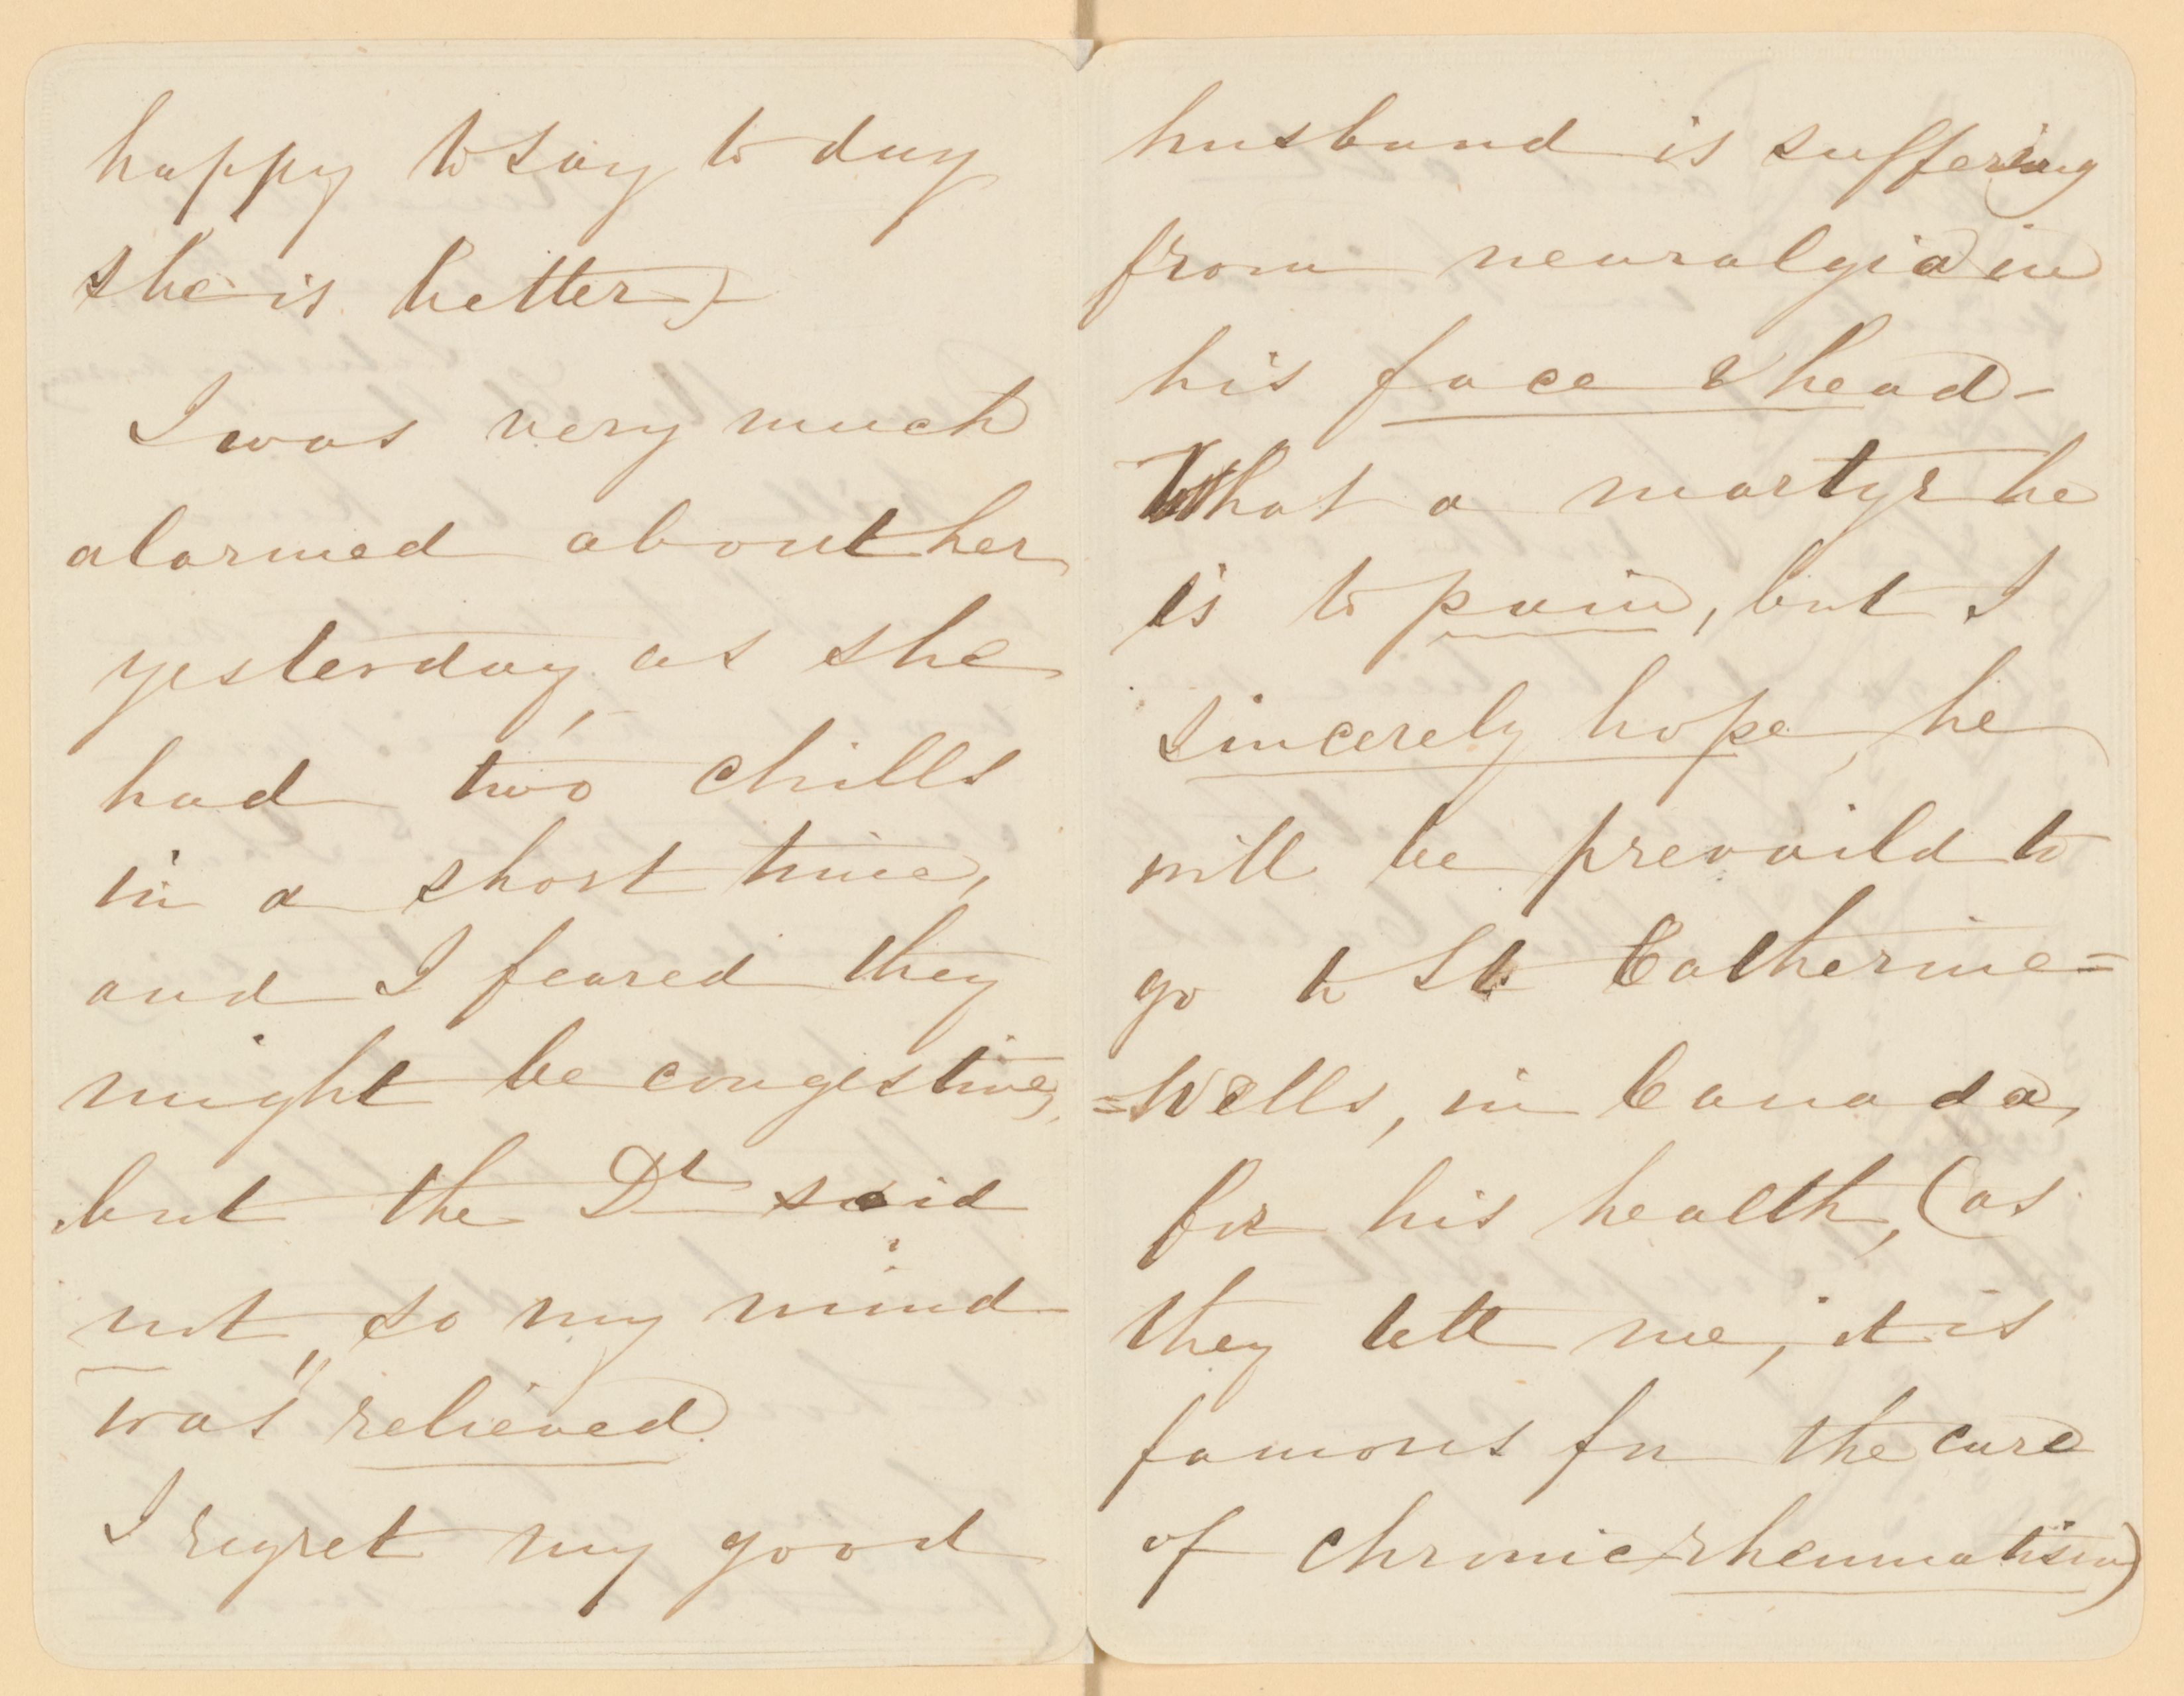 happy to say to day
she is better)
I was very much
alarmed about her
yesterday, as she
had two chills
in a short time,
and I feared they
might be congestive,
but the Dr said
not, so my mind
was relieved.
I regret my good
husband is suffering
from neuralgia in
his face & head -
What a martyr he
is to pain, but I
sincerely hope, he
will be prevaild to
go to St Catherine=
=Wells, in Canada,
for his health, (as
they tell me, it is
famous for the cure
of chronic rheumatism)